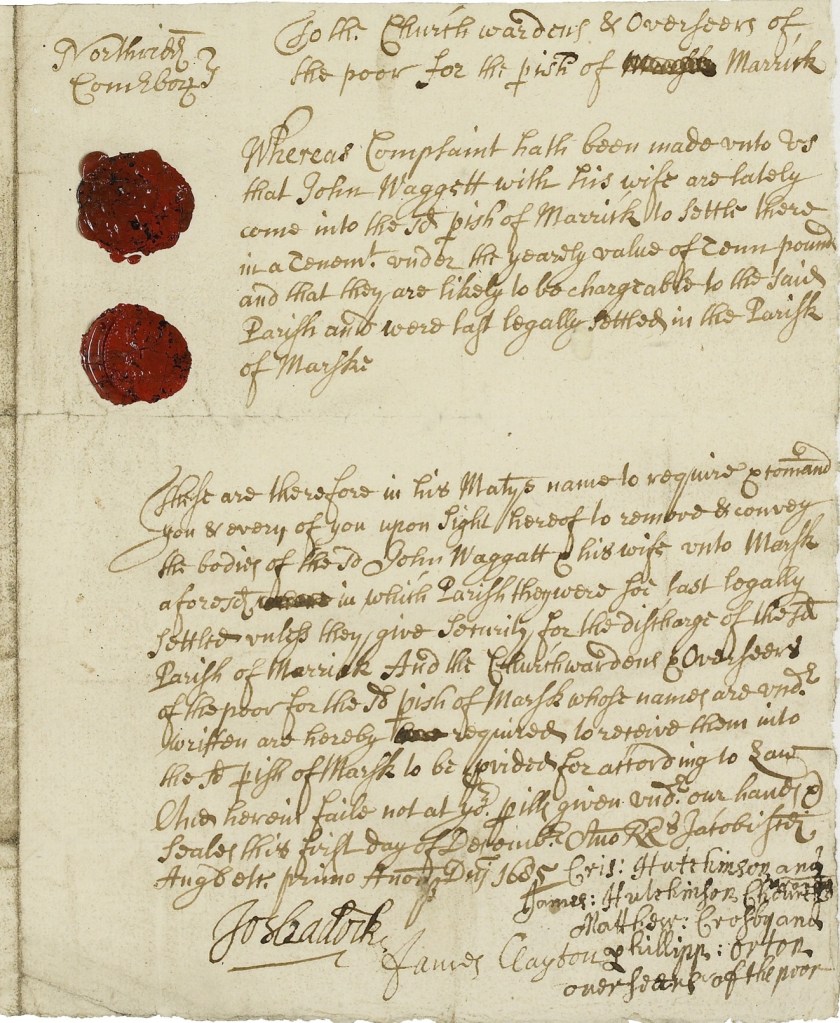 Northridd
Com Ebor
To the Churchwardens & Overseers of
the poor for the pish of Marrick
Whereas Complaint hath been made vnto Vs
that John Waggett with his wife are lately
come into the sd pish of Marrick to settle there
in a Tenemt. vnder the yearly value of Tenn pound
and that they are likely to be chargeable to the said
Parish and were last legally settled in the Parish
of Marske
These are therefore in his Matys name to require & comand
you & every of you upon sight hereof to remove & convey
the bodies of the sd John Waggatt & his wife vnto Marsk
aforesd in which Parish they were soe last legally
settled vnless they give security for the discharge of the sd
Parish of Marrick And the Churchwardens & Overseers
of the poor for the sd pish of Marsk whose names are vndr
written are hereby required to receive them into
the sd pish of Marsk to be pvided for according to Law
herein faile not at yor. pills given vndr. our hands &
seales this first day of Decembr. Ano RRs Jacobi scdi
Angl etc. primo Anoq Dni 1685
Cris: Hutchinson and
James: Hutchinson
Matthew: Crosby and
phillipp: orton
overseers of the poor
Jo Cradock
James Clayton